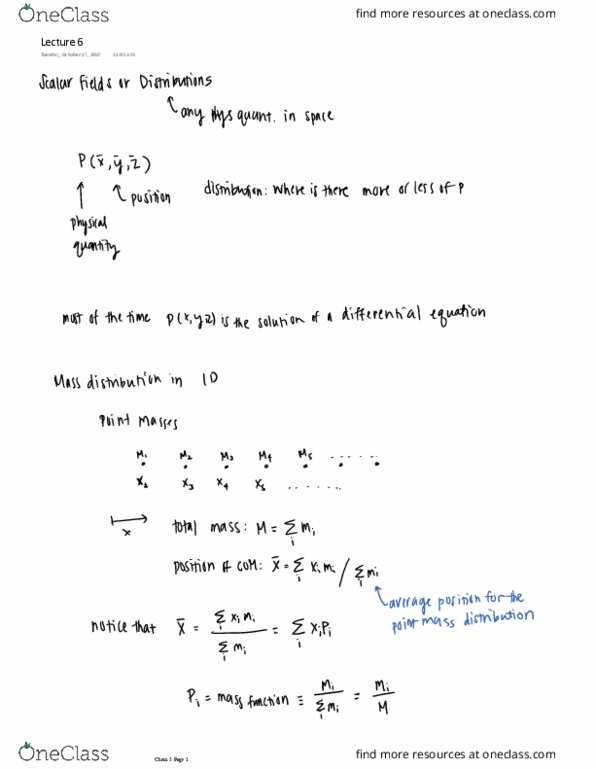 OneClass
find more resources at oneclass.com
Lecture 6
Tuesday, October 17, 2017
Scalar Fields or Distributions
any phys quant. in space
P(x̄,ȳ,z̄)
position
distribution: where is there more or less of P
physical
quantity
most of the time P(x,y,z) is the solution of a differential equation
Mass distribution in 1D
Point Masses
M₁ M₂ M₃ M₄ M₅ ......
X₂ X₃ X₄ X₅ .......
x
total mass: M = Σᵢ mᵢ
position of COM: x̄ = Σᵢ xᵢ mᵢ / Σᵢ mᵢ
average position for the
point mass distribution
notice that x̄ = Σᵢ xᵢ mᵢ / Σᵢ mᵢ = Σᵢ xᵢPᵢ
Pᵢ = mass function ≡ Mᵢ / Σᵢ mᵢ = Mᵢ / M
OneClass
Class 5 Page 1
find more resources at oneclass.com